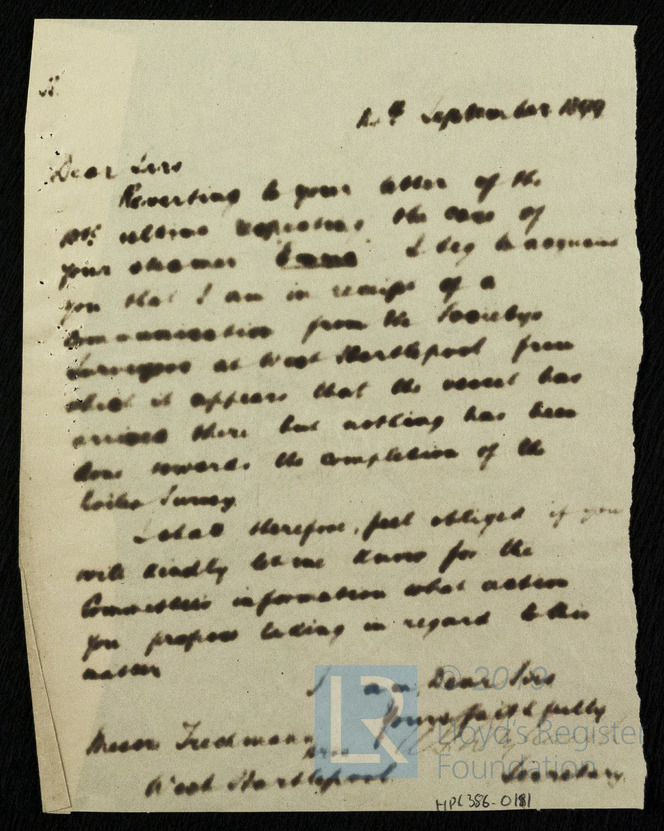 September 1899
Dear Sirs
Reverting to your letter of the
ultimo respecting the case of
your steamer I beg to acquaint
you that I am in receipt of a
communication from the Society's
Surveyors at West Hartlepool from
which it appears that the vessel has
arrived there but nothing has been
done towards the completion of the
Boiler Survey.
I shall therefore, feel obliged if you
will kindly let me know for the
Committee's information what action
you propose taking in regard to this
matter
I am, Dear Sirs
Yours faithfully
Messrs
West Hartlepool.
Secretary.
LR
© 2019
Lloyd's Register
Foundation
HPC386-0181